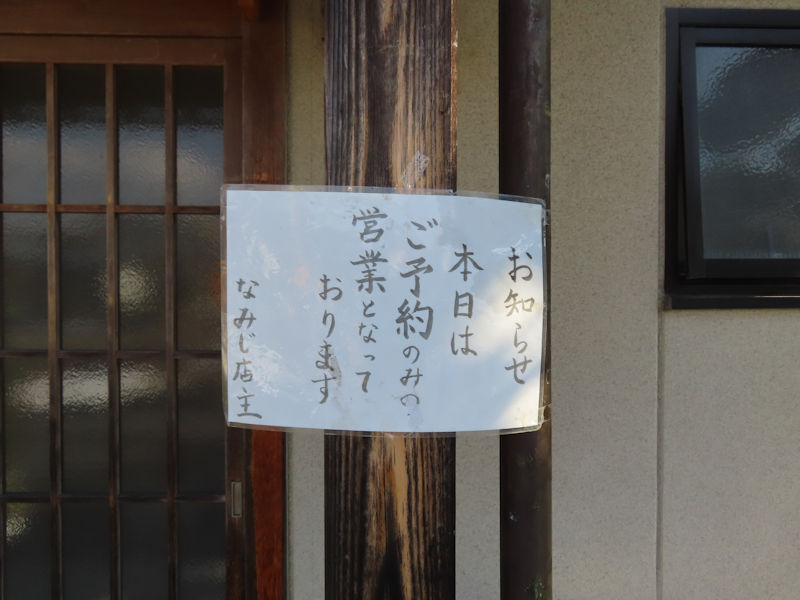 お知らせ
本日は
ご予約のみの
営業となって
おります
なみじ店主